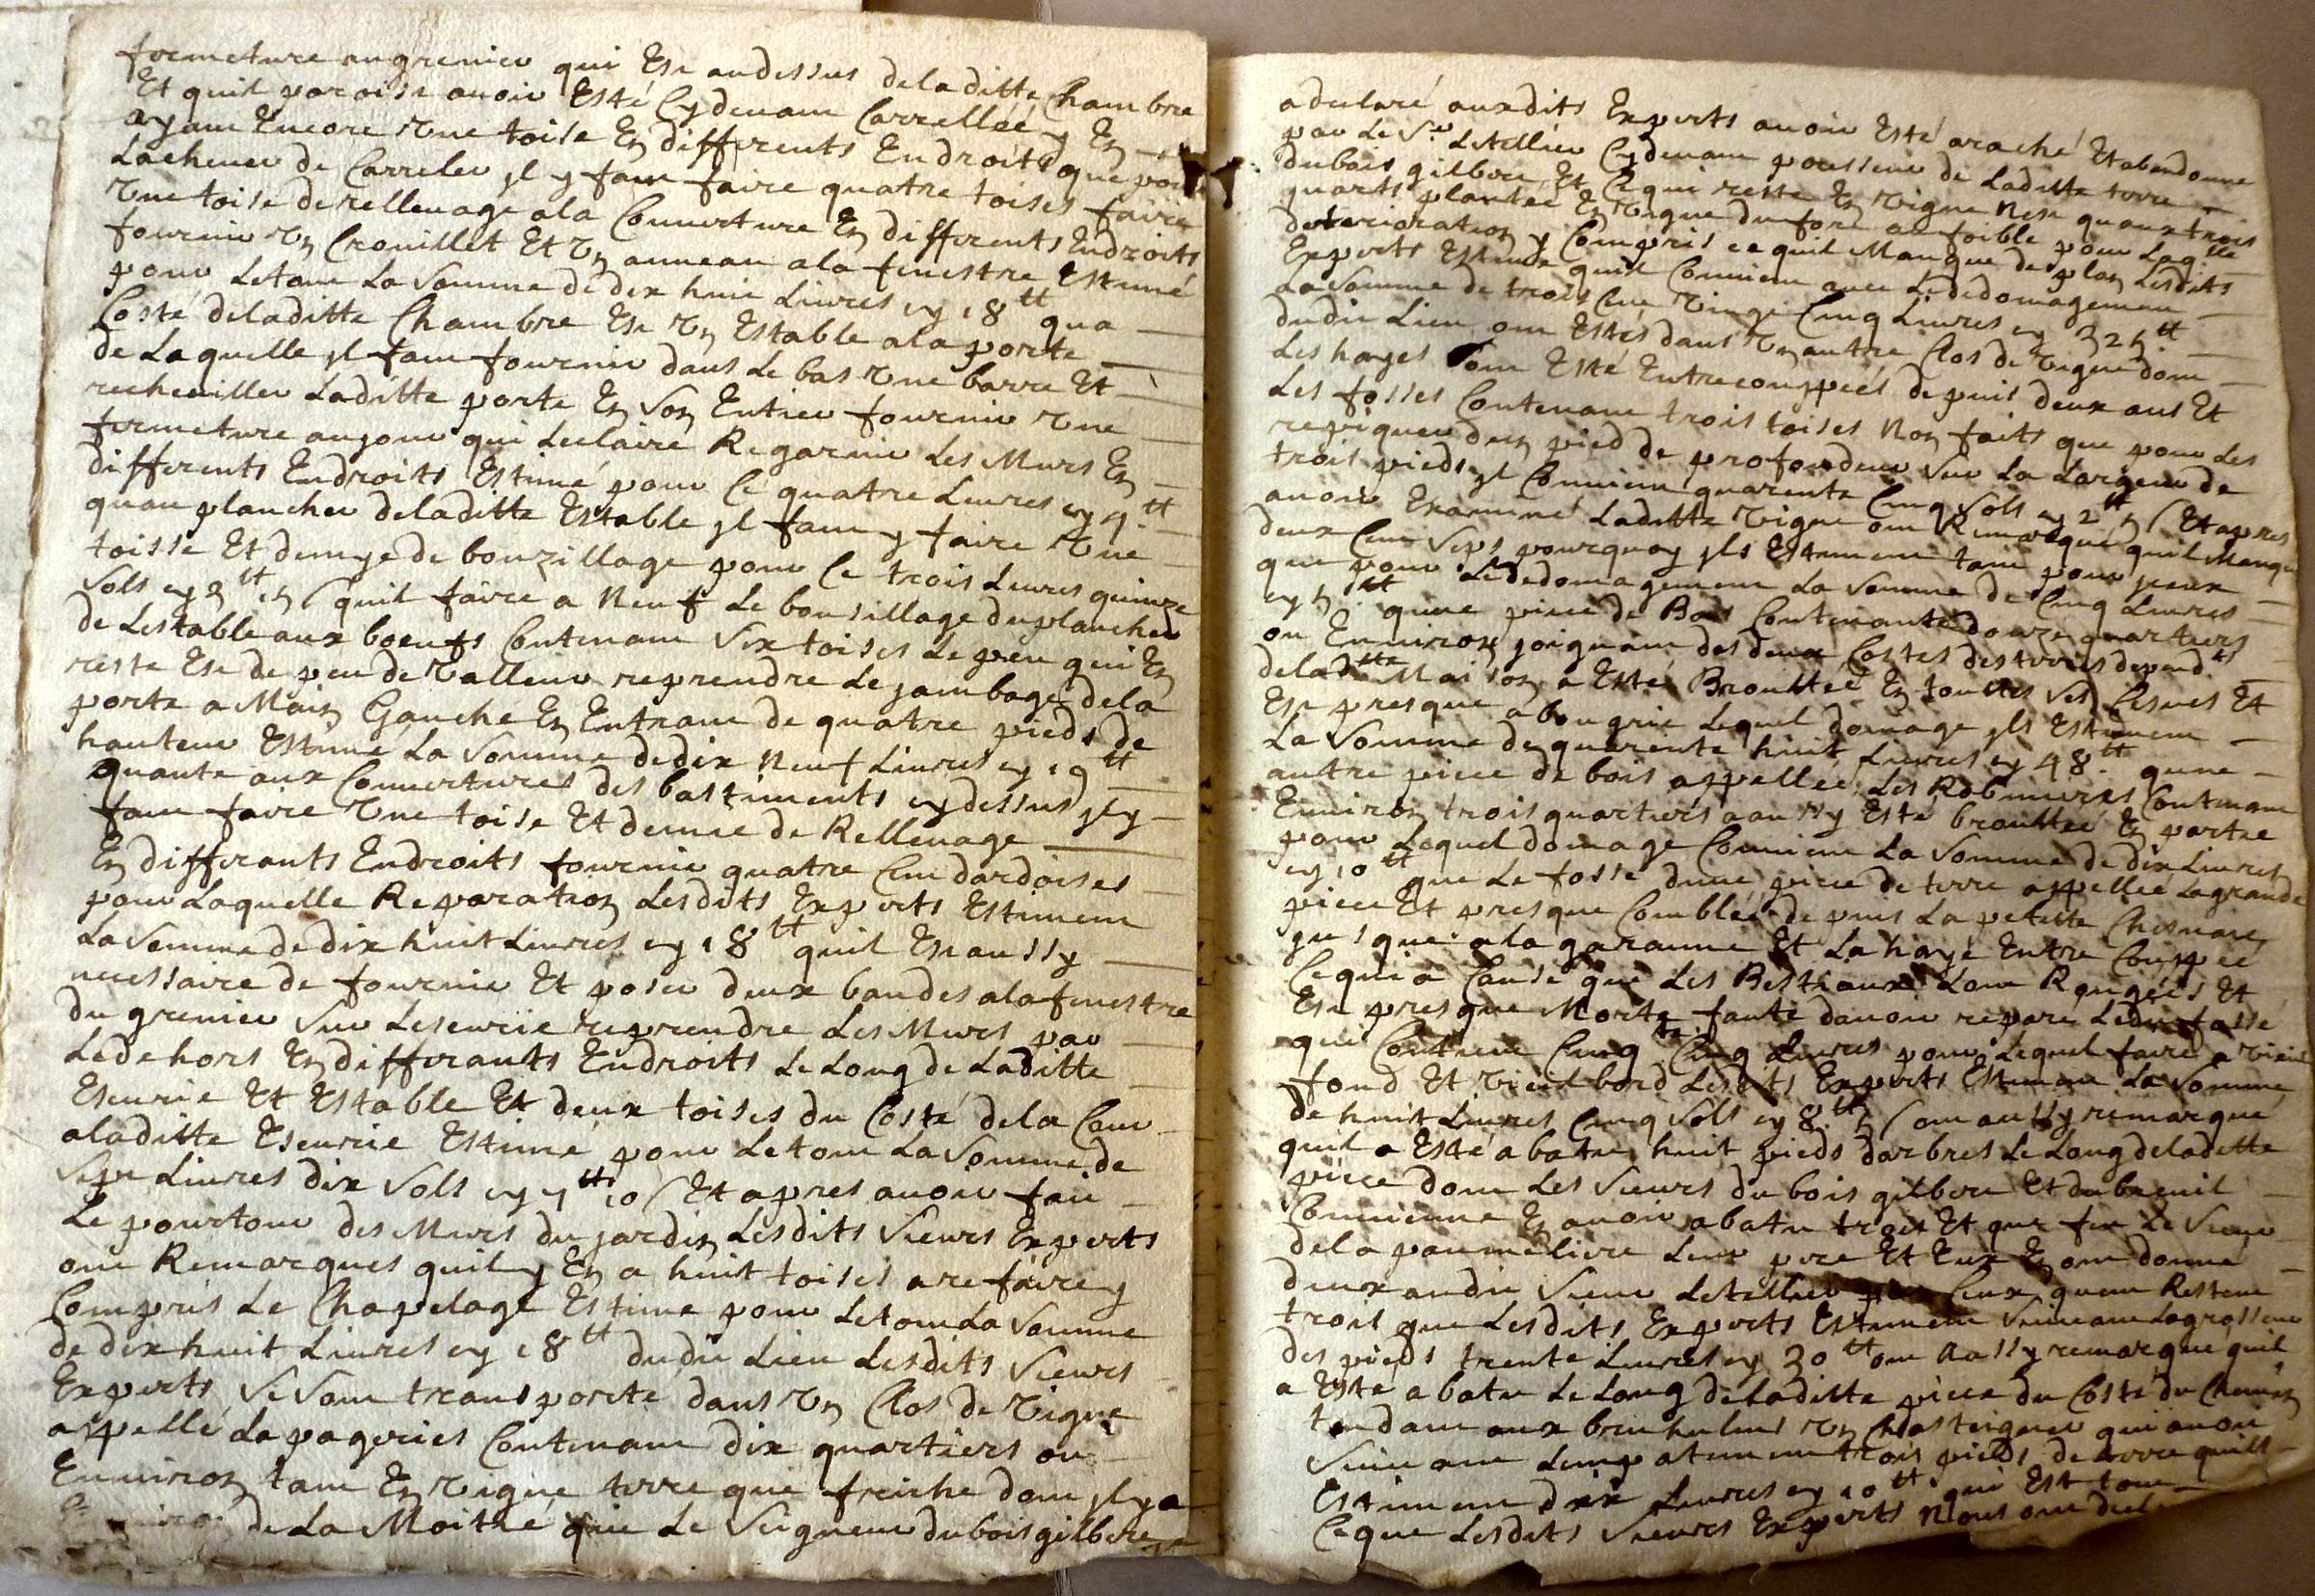 fermeture au grenier qui Est audessus deladitte Chambre
Et quil paroist auoir Esté Cydeuant Carrellée y En
ayant Encore Une toise En differents Endroits que pour
Lacheuer de Carreler yl y faut faire quatre toises faire
Une toise derelleuage ala Couuerture En differents Endroits
fournir Un Crouillet Et Un anneau ala fenestre Estimé
pour Letout La Somme de dix huit Liures cy 18tt qua
Costé deladitte Chambre Est Un Estable ala porte
de Laquelle yl faut fournir dans Le bas Une barre Et
recheuiller Laditte porte En Son Entier fournir Une
fermeture aujour qui Leclaire Regarnir Les Murs En
differents Endroits Estimé pour Ce quatre Liures cy 4tt
quau plancher deladitte Estable yl faut y faire Une
toisse Et demye de bouzillage pour Ce trois Liures quinze
Sols cy 3tt 15 s quil faire a Neuf Le bousillage duplancher
de Lestable aux boeufs Contenant Six toises Le peu qui En
reste Est de peu de Valleur reprendre Le jambage dela
porte a Main Gauche En Entrant de quatre pieds de
hauteur Estimé La Somme dedix Neuf Liures cy 19tt
quante aux Couuertures des bastiments cydessus yl y
faut faire Une toise Et demie de Relleuage
En differants Endroits fournir quatre Cent dardoises
pour Laquelle Reparation Lesdits Experts Estiment
La Somme de dix huit Liures cy 18tt quil Est aussy
necessaire de fournir Et poser deux bandes ala fenestre
du grenier Sur Lescurie reprendre Les Murs par
Ledehors En differants Endroits Le Long de Laditte
Escurie Et Estable Et deux toises du Costé dela Cour
aladitte Escurie Estimé pour Letout La Somme de
Sept Liures dix Sols cy 7tt 10 s Et apres auoir fait
Le pourtour des Murs du jardin Lesdits Sieurs Experts
ont Remarques quil y En a huit toises arefaire y
Compris Le Chapelage Estimé pour Letout La Somme
de dix huit Liures cy 18tt dudit Lieu Lesdits Sieurs
Experts Se Sont transporté dans Un Clos de Vigne
appellé La pageries Contenant dix quartiers ou
Enuiron tant En Vigne terre que friche dont yl y a
de La Moitié que Le Seigneur dubois gilbert
a declaré auxdits Experts auoir Esté araché Et abandonné
par Le Sr Letellier Cydeuant possesseur de Laditte terre
dubois gilbert Et Cequi reste En Vigne Nest quaux trois
quarts plantée En Vigne du fort au foible pour Laqlle
deterioration y Compris ce quil Manque de plan Lesdits
Experts Estime quil Conuient auec Lededomagement
La Somme de trois Cent Vingt Cinq Liures cy 325tt
dudit Lieu ont Estés dans Un autre Clos de Vigne dont
Les hayes Sont Esté Entrecouppeés depuis deux ans Et
Les fosses Contenant trois toises Non faits que pour Les
repiquer dun pied de profondeur Sur La Largeur de
trois pieds yl Conuient quarente Cinq Sols cy 2tt 5 s Et apres
auoir Examiné Laditte Vigne ont Remarqué quil Manque
deux Cent Seps pourquoy yls Estiment tant pour jceux
que pour Lededomagement La Somme de Cinq Liures
cy 5tt qune piece de Bois Contenante douze quartiers
ou Enuiron joignant des deux Costes des terres depend.ts
deladitte Maison a Esté Brouttée En touttes Ses Cesnes Et
Est presque abougrie Lequel domage yls Estiment
La Somme de quarente huit Liures cy 48tt qune
autre piece de bois appellée Les Robinieres Contenant
Enuiron trois quartiers aaussy Esté brouttée En partie
pour Lequel domage Conuient La Somme de dix Liures
cy 10tt que Le fossé dune piece de terre appellée Lagrande
piece Et presque Comblée depuis La petitte Chesnaie
jusques ala garanne Et La haye Entre Couppée
Cequi a Causé que Les Bestiaux Lont Rongées Et
Est presque Morte faute dauoir reparé Ledit fossé
qui Contient Cinq.te Cinq Liures pour Lequel faire a Vieil
fond Et Vieil bord Lesdits Experts Estiment La Somme
de huit Liures Cinq Sols cy 8tt 5 s ont aussy remarque
quil a Esté abatu huit pieds darbres Le Long deladitte
piece dont Les Sieurs du bois gilbert Et dubreuil
Conuienne En auoir abatu trois Et que feu Le Sieur
dela paumeliere Leur pere Et Eux En ont donné
deux audit Sieur Letellier Ceux quen Restent
trois que Lesdits Experts Estiment Suiuant Lagrosseur
des pieds trente Liures cy 30tt ont Aussy remarque quil
a Esté abatu Le Long deladitte piece du Costé du Chemin
tendant aux Un Chasteigner qui auoit
Suiuant Leurs trois pieds de terre quils
Estiment dix Liures cy 10tt qui Est tout
Ceque Lesdits Sieurs Experts Nous ont